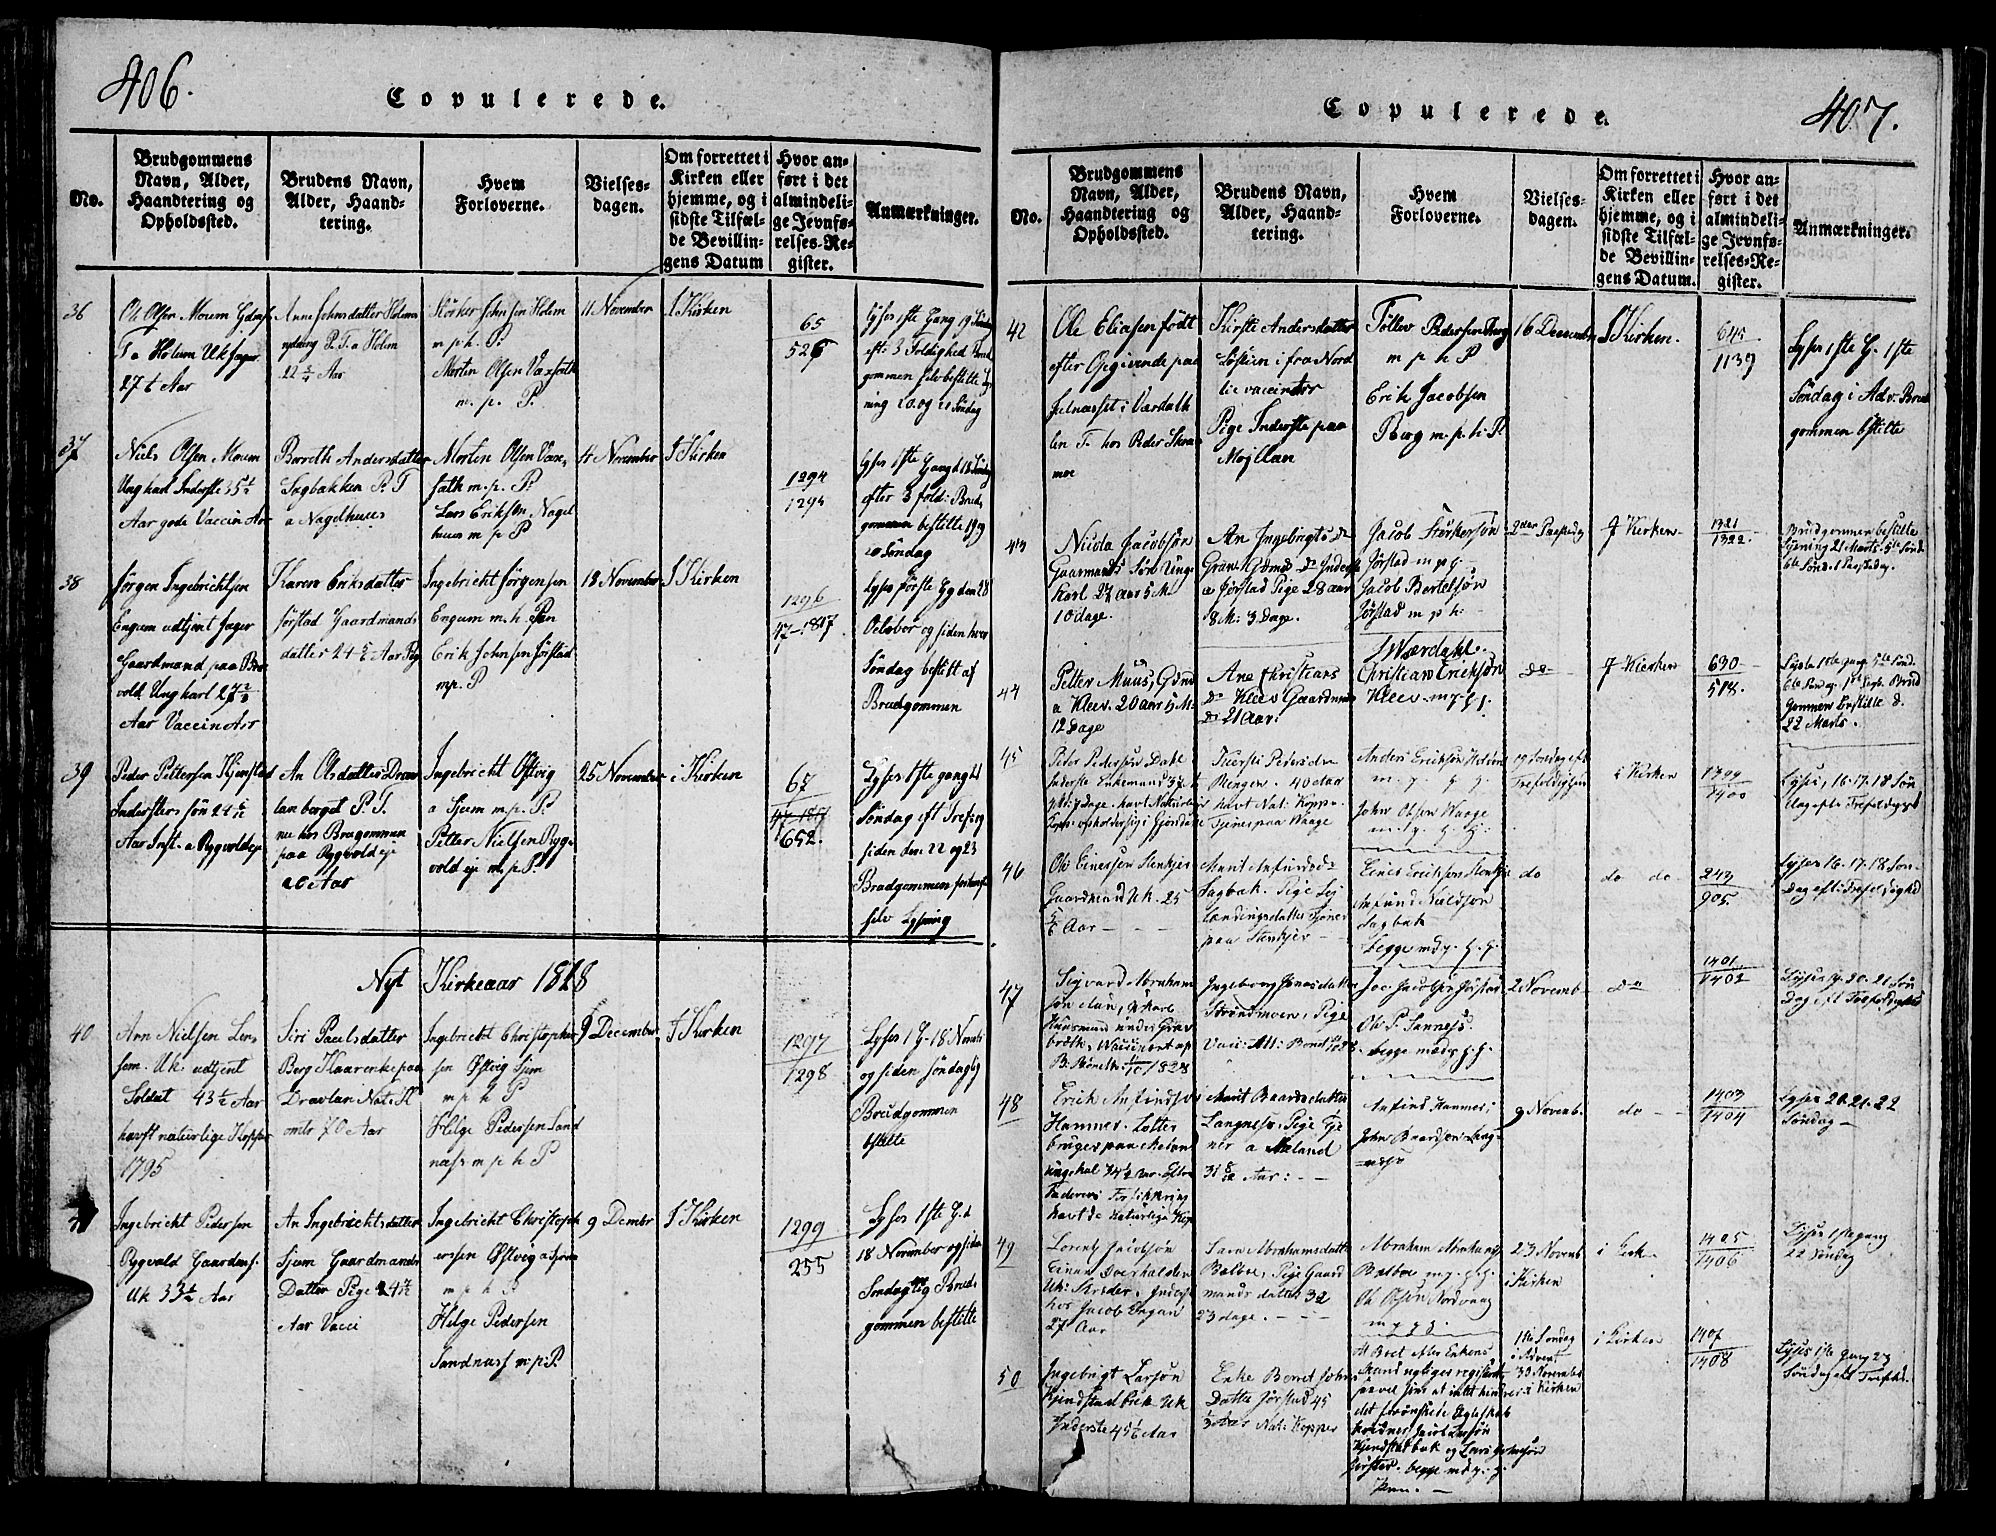 406.
Copulerede.
No.
Brudgommens
Navn, Alder,
Haandtering og
Opholdssted.
Brudens Navn,
Alder, Haand-
tering.
Hvem
Forloverne.
Vielses-
dagen.
Om forrettet i
Kirken eller
hjemme, og i
sidste Tilfæl-
de Bevillin-
gens Datum
Hvor an-
ført i det
almindeli-
ge Jevnfø-
relses-Re-
gister.
Anmærkninger.
36
Ole Olsen Moum
27 Aar
Anne Johnsdatter Holem
Aar
Størker Johnsen Holem
m p h. P.
Morten Olsen Vaxfath
m. p. P.
11 November
I Kirken
65
526
Lyser 1ste Gang 19 Søndag
eft: 3 Foldighed Brud
gommen selv bestilte Lys
ning 20. og 21 Søndag
37
Niels Olsen Moum
Ungkarl Inderste 35½
Aar gode Vaccin Arr
Berreth Andersdatter
P. T
a Nagelhuus
Morten Olsen Vax-
fath m. p. P.
Lars Eriksen Nagel
huus m p P
4 November
I Kirken
1294
1295
Lyser 1ste Gang d 18 Søndag
efter 3 fold: Brud
gommen bestilte 19 og
20 Søndag
38
Jørgen Ingebrichtsen
Engum udtjent Jæger
Gaardmand paa
vold Ungkarl 27
Aar Vaccin Arr
Karen Eriksdatter
Jørstad Gaardmands
datter 24 Aar Pig
Ingebricht Jørgensen
Engum m. h. Pen
Erik Johnsen Jørstad
mp. P
18 November
I Kirken
1296
47-1817
Lyser første Gg den 28
October og siden hver
Søndag bestilt af
Brudgommen
39
Peder Pettersen Kjenstad
Inderster søn 24
Aar Inst. a Rygvold eje
An Olsdatter Drav
lan berget P. T.
nu hos Bragommen
paa Rygvold eje
20 Aar
Ingebricht Østvig
a Sjem m. p. P.
Petter Nielsen Rygg
vold eje m. p P.
25 November
i Kirken
67
47-1817
652.
Lyser 1ste gang 21
Søndag eft Trefog
siden den 22 og 23
Bradgommen
selv Lysning
Nyt Kirkeaar 1818
40
Arn Nielsen Len
sem. Uk. udtjent
Soldat 43½ Aar
havft naturlige Kopper
1795
Siri Paulsdatter
Berg Kaarenke paa
Dravlan Nat. Kl
omtr 70 Aar
Ingebricht Christopher
sen Østvig Sjem
m p h P
Helge Pedersen Sand
næss m p h P
9 December
I Kirken
1297
1298
Lyser 1 G. 18 Novemb
og siden søndaglig
Brudgommen
bstilte
Ingebricht Pedersen
Rygvold Gaardmf.
Uk 33½ Aar
An Ingebrichtsdatter
Sjem Gaardmands
Datter Pige 24
Aar Vacci
Ingebricht Christoph
erssen Østvig a Sjem
m p h P
Helge Pedersen
Sandnæss m: p: P.
9 Dembr
I Kirken
1299
255
Lyser 1ste G. d
18 November og siden
Søndaglig Brud
gommen bestilte
407.
Copulerede.
No.
Brudgommens
Navn, Alder,
Haandtering og
Opholdssted.
Brudens Navn,
Alder, Haand-
tering.
Hvem
Forloverne.
Vielses-
dagen.
Om forrettet i
Kirken eller
hjemme, og i
sidste Tilfæl-
de Bevillin-
gens Datum.
Hvor an-
ført i det
almindeli-
ge Jevnfø-
relses-Re-
gister.
Anmærkninger.
42
Ole Eliasen født
efter Opgivende paa
Julnæsset i Værdalk
len T. hos Peder Skra
moe
Kirste Andersdatter
i fra Nord
lie vaccineter
Pige Inderste paa
Mojllan
Tøllev Pedersen Berg
m p h P
Erik Jacobsen
Berg m. p. h: P.
16 December
I Kirken.
645
1139
Lyser 1ste G. 1ste
Søndag i Adv: Brud
gommen bstilte
43
Nicola Jacobsøn
Gaarmands Søn Unge
karl 24 aar 5 M.
10 dage.
An Ingebrigts Dr
a Jørstad Pige 28 aar
8 M: 3 Dage.
Jacob Størkersøn
Jørstad m p g.
Jacob Bertelsøn
Jørstad m p h.
2den Paaskedag
I Kirken
1321
1322.
Brudgommen bestilte
Lysning 21 Marts. 5te Sønd.
6te Sønd. 1 Paaskedag.
44
Petter Muus,
a Kleev. 20 aar 5 M:
12 Dage
Ane Christians
Dr Kleev Gaardmands
Dr. 21 Aar.
I Værdahl.
Christian Erikssøn
Kleev. m. p. g. g.
do
I Kierken
630
518.
Lyste 1ste gang 5te Sønd.
gommen bestilte d.
22 Marts.
45
Peder Pedersøn Dahl
Inderste Enkemand 37
Kiersti Pedersdr
Mengen. 40 Aar
havt Nat: Koppr.
Tjener paa Waage
Anders Erikssøn
m. g. g. g.
John Olssøn Waage
m. g. g. g.
19 Søndag eft
Trefoldigheden
i Kirken
1799
1400
Lyses, 16. 17. 18 Søn
dag efter Trefoldighed
46
Ole Einersøn Stenkjer
Gaardmand Uk. 25
Aar
Marit Anfindsd:
Fagbak. Pige Lej
lændingsdatter Tjener
paa Stenkjer
Einer Erikssøn Stenkje
Anfind Nieldsøn
Fagbak
begge md p. g. g.
do
do do
243
905.
Lyses 16. 17. 18 Søn
dag eft: Trefoldighed
47
Sigvard Abraham
søn Aun, Uk karl
Huusmand under Grøn
brøtt. Vaccinert
1828
Ingeborg Jonasdatter
Strøndmoen, Pige
Vacc: Att:
Jac. Jacobsen Jørstad
Ole P. Sannes
begge md p. g. g.
2 Novemb
do
1401
1402
Lyses 9. 20. 21 Søn
dag eft Trefoldighed
48
Erich Anfindsøn
Hammer. Lotter
bruger paa
Faderens Forsikkring
havt de naturlige Kop
Marit Baardsdatter
Langnes. Pige Tje
ner a Meland
31 Aar:
Anfind Hammer,
John Baardsøn Lang
næss
9 Novemb.
do
1403
1404
Lyses 20. 21. 22
Søndag
49
Lorentz Jacobsøn
Einan Overhalden
Uk: Skreder. Inderst
hos Jacob Engan
27 Aar
Sara Abrahamsdatter
Bælboe, Pige Gaard
mands datter 32
23 dage.
Abraham Abrahams
Bælboe m. p. g. g.
Ole Olssøn Nordvaag
m p g g.
23 Novemb
i Kirken
i Kirk.
1405
1406
Lyses 1ste gang
22 Søndag
50
Ingebrigt Larsøn
Kjendstad bek. Uk
Inderste 45½ Aar
Enke Berret Johns
Datter Jørstad 45
Aar Nat: Kopper
At Bret Aller Enkens
det forønskede Egteskab
Jacob Larsøn
Kjendstadbak og Lars Johnsøn
Jørstad. begge md p. g.
Pen.
1ste Søndag
i Advent
30 November
i Kirken
i Kirken
1407
1408
Lyses 1ste gang 23
Søndag eft Trefold.